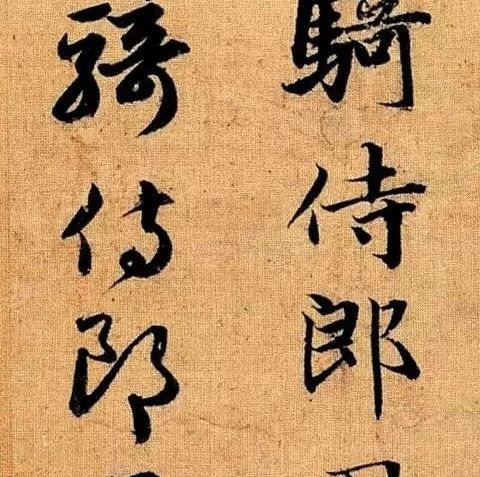 騎侍郎
騎侍郎